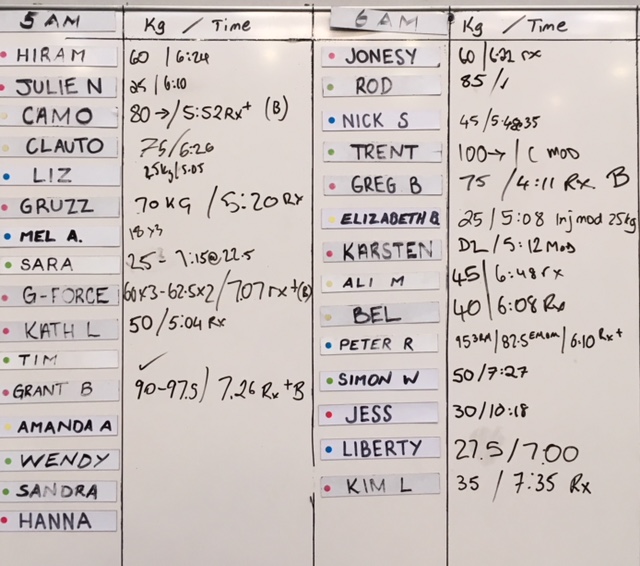 5 AM Kg / Time
HIRAM 60 / 6:24
JULIE N 25 / 6:10
CAMO 80 → / 5:52 Rx+ (B)
CLAUTO 75 / 6:26
LIZ 25kg / 5:05
GRUZZ 70 KG / 5:20 Rx
MEL A. 18 x3
SARA 25 - 7:15@22.5
G-FORCE 60x3-62.5x2 / 7.07 rx+(B)
KATH L 50 / 5:04 Rx
TIM ✓
GRANT B 90-97.5 / 7.26 Rx+B
AMANDA A
WENDY
SANDRA
HANNA
6 AM Kg / Time
JONESY 60 / 6:22 rx
ROD 85 /
NICK S 45 / 5:48@35
TRENT 100 → / C MOD
GREG B 75 / 4:11 Rx. B
ELIZABETH B 25 / 5:08 Inj mod 25kg
KARSTEN DL / 5:12 MOD
ALI M 45 / 6:48 rx
BEL 40 / 6:08 Rx
PETER R 95 3RM / 82.5 EMOM / 6:10 Rx+
SIMON W 50 / 7:27
JESS 30 / 10:18
LIBERTY 27.5 / 7.00
KIM L 35 / 7:35 Rx